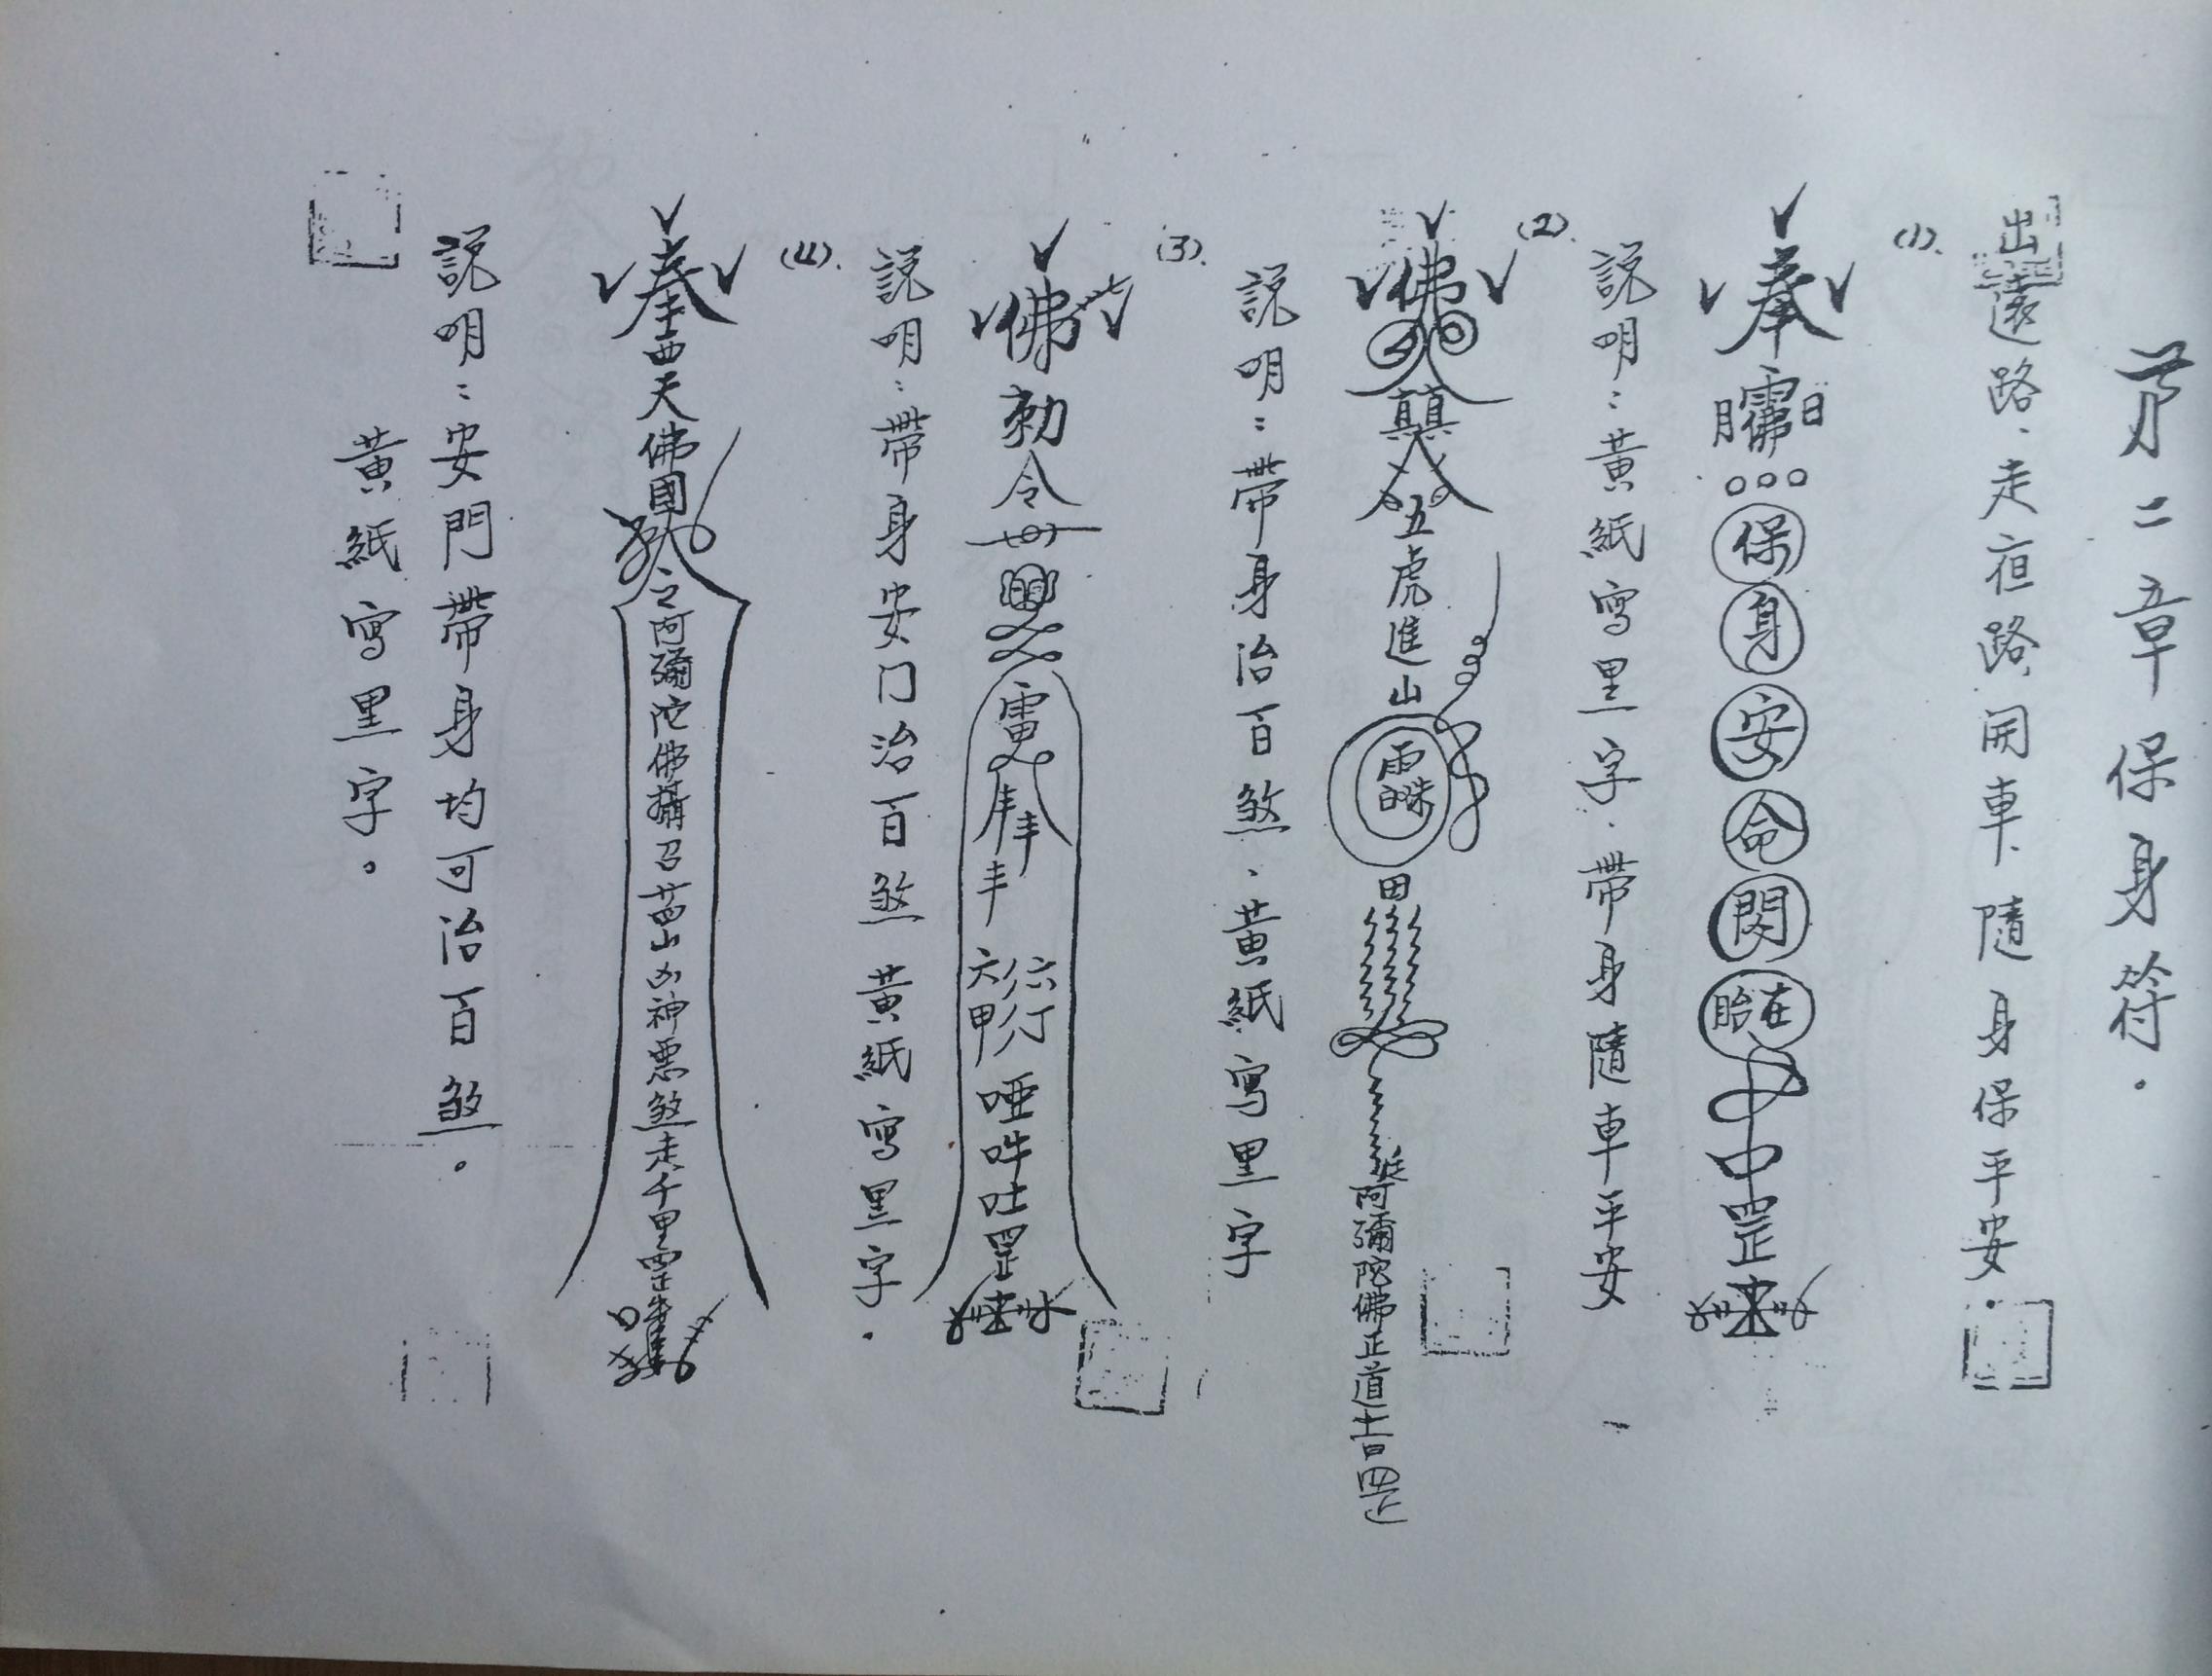 第二章保身符.
出遠路.走夜路.開車.隨身保平安.
(1).
奉
月 佛 日
保身安命閃
胎在
罡
説明:黃紙寫黑字.帶身隨車平安
(2).
佛
五虎進山
田
阿彌陀佛正道
説明:帶身治百煞.黃紙寫黑字
(3).
佛勅令
雷
六甲六丁
啞吽吐罡
説明:帶身安门治百煞黃紙寫黑字.
(4).
奉西天佛國
令阿彌陀佛攝召
山凶神惡煞走千里罡
説明:安門帶身均可治百煞。
黃紙寫黑字。